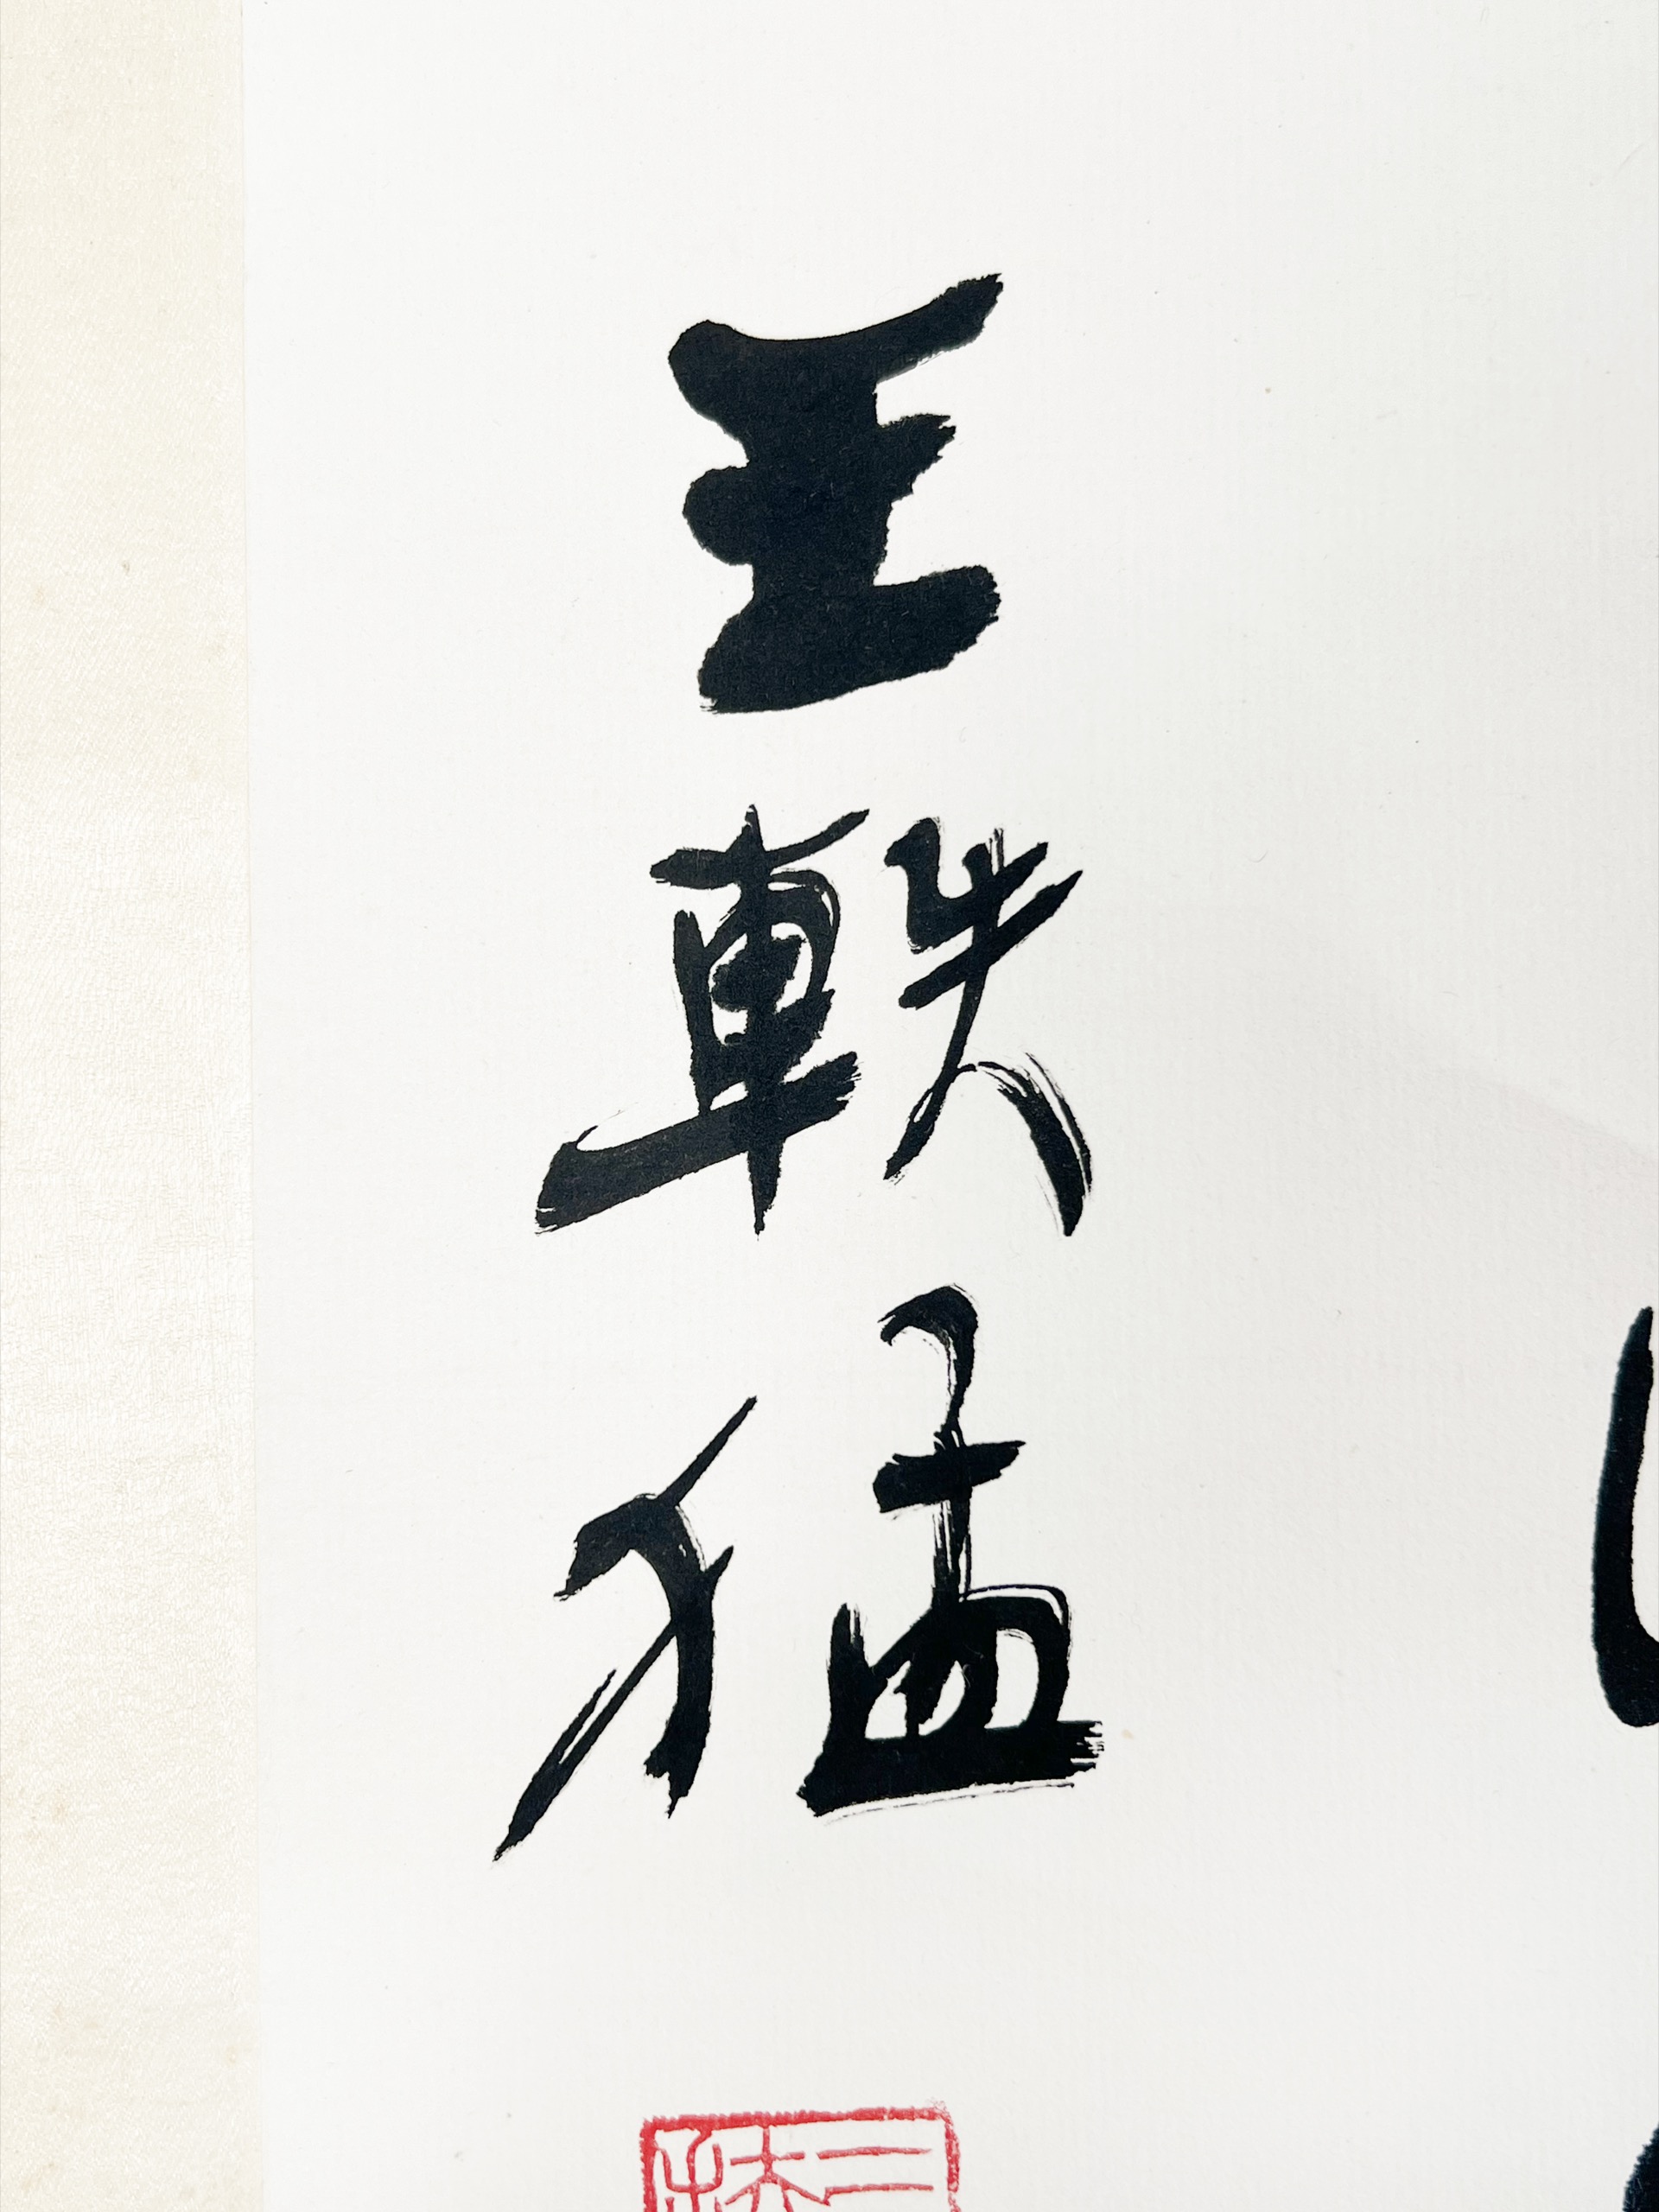 王軼猛